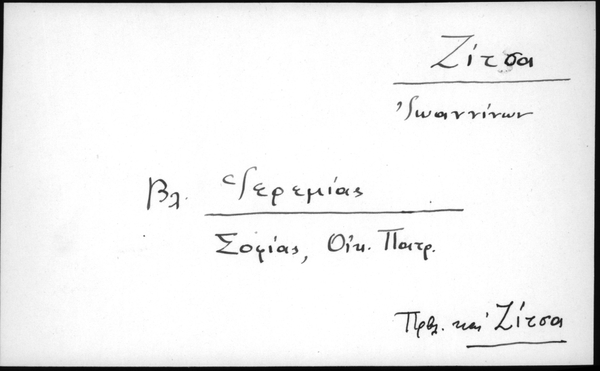 Ζίτσα
Ἰωαννίνων
Βλ. Ἱερεμίας
Σοφίας, Οἰκ. Πατρ.
Πρβλ. καὶ Ζίτσα